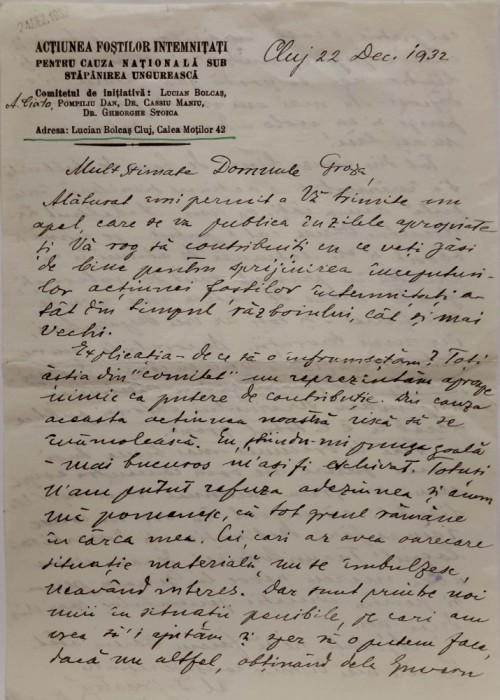 24 DEZ. 1932
ACȚIUNEA FOȘTILOR INTEMNIȚAȚI
PENTRU CAUZA NAȚIONALĂ SUB
STĂPÂNIREA UNGUREASCĂ
Comitetul de inițiativă: LUCIAN BOLCAȘ,
A. Ciato, POMPILIU DAN, DR. CASSIU MANIU,
DR. GHEORGHE STOICA
Adresa: Lucian Bolcaș Cluj, Calea Moților 42
Cluj 22 Dec. 1932
Mult Stimate Domnule Groza,
Alăturat îmi permit a Vă trimite un
apel, care se va publica în zilele apropiate
și Vă rog să contribuiți cu ce veți găsi
de bine pentru sprijinirea începuturi-
lor acțiunei foștilor întemnițați a-
tât din timpul războiului, cât și mai
vechi.
Explicația - de ce să o înfrumsețăm? Toți
ăștia din "comitet" nu reprezintăm aproape
nimic ca putere de contribuție. Din cauza
aceasta acțiunea noastră riscă să se
înămolească. Eu, știindu-mi punga goală
- mai bucuros m'ași fi eschivat. Totuși
n'am putut refuza adeziunea și acum
mă pomenesc, că tot greul rămâne
în cârca mea. Cei, cari ar avea oarecare
situație materială, nu se îmbulzesc,
neavând interes. Dar sunt printre noi
unii în situații penibile, pe cari am
vrea să-i ajutăm și sper să o putem face,
dacă nu altfel, obținând dela Guvern